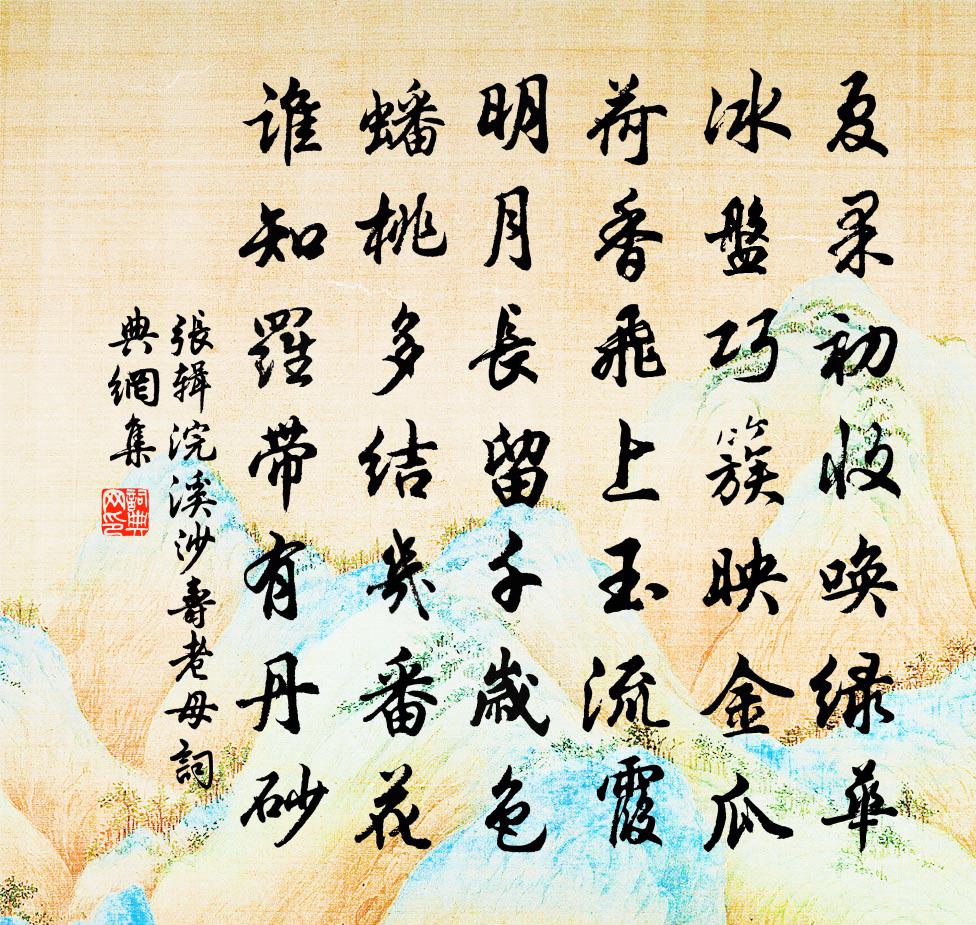 夏果初收唤緑華
冰盤巧簇映金瓜
荷香飛上玉流霞
明月長留千歲色
蟠桃多結幾番花
誰知羅帶有丹砂
張輯浣溪沙壽老母詞
典網集
詞典网印